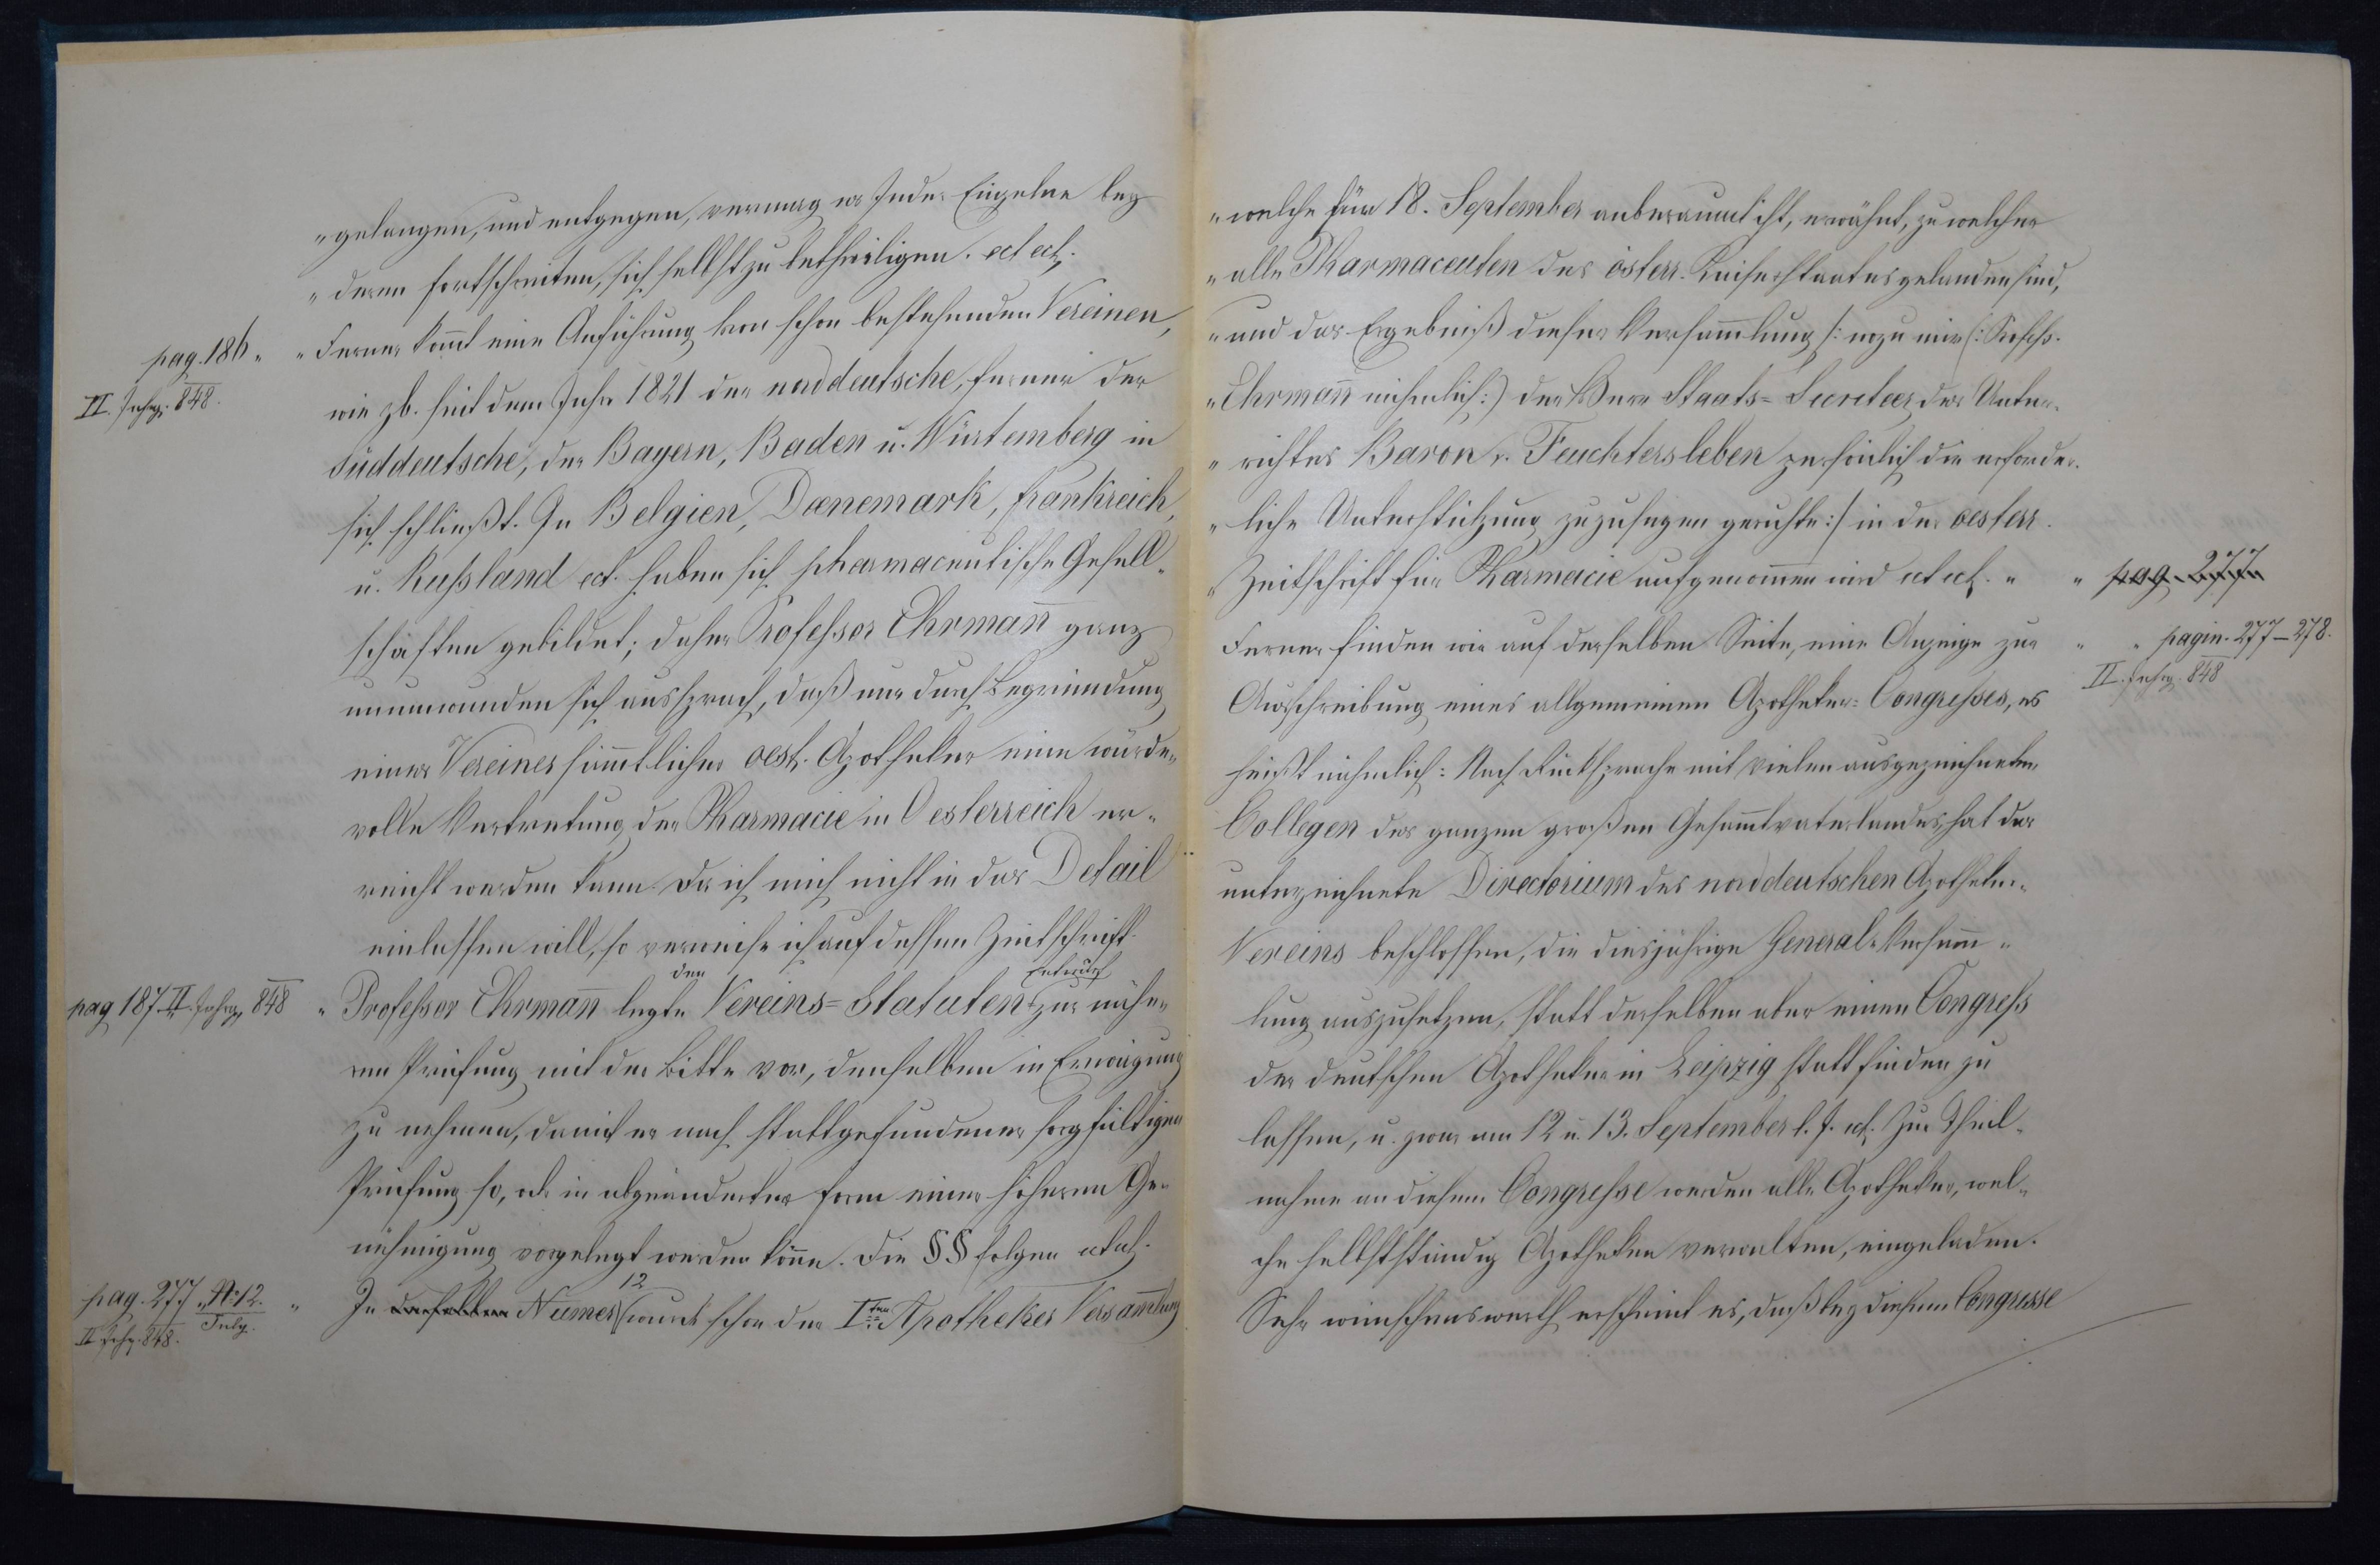 „gelangen, und entgegen, vermag es Jeder Einzelne bey
„deren Fortschreiten, sich selbst zu betheiligen. ect ect.
pag. 186 „
II. Jahrg. 848.
„Ferner kom̄t eine Anführung von schon bestehenden Vereinen,
wie zb. seit dem Jahre 1821 der norddeutsche, ferner der
süddeutsche, der Bayern, Baden u. Würtemberg in
sich schließt. In Belgien, Dænemark, Frankreich,
u. Rußland ect. haben sich pharmaceutische Gesell„
schaften gebildet; daher Professor Ehrman̄ ganz
unumwunden sich aussprach, daß nur durch Begründung
eines Vereines sām̄tlicher oest. Apotheker eine würde„
volle Vertretung der Pharmacie in Oesterreich er„
reicht werden kann. Da ich mich nicht in das Detail
einlassen will, so verweise ich auf dessen Zeitschrift.
pag 187. II. Jahrg. 848 „
Professor Ehrman̄ legte den Vereins=Statuten Entwurf zur nähe„
ren Prüfung mit der Bitte vor, denselben in Erwägung
zu nehmen, damit er nach stattgefundener sorgfältigen
Prüfung so, od. in abgeänderter Form einer höheren Ge„
nehmigung vorgelegt werden kön̄e. Die §§ folgen ect ect.
pag. 277 „ № 12. „
July.
II Jahrg. 848.
In derselben Numer 12 wurde schon der I.ten Apotheker Versam̄lung
„welche für 18. September anberaumt ist, erwähnt, zu welcher
„alle Pharmaceuten des österr. Kaiserstaates geladen sind,
„und das Ergebniß dieser Versam̄lung /: wozu mir (: Profess.
„Ehrman̄ nehmlich :) der Herr Staats=Secreteer des Unter„
„richtes Baron v. Feuchtersleben persönlich die erforder„
„liche Unterstützung zuzusagen geruhte :/ in der oesterr.
„Zeitschrift für Pharmacie aufgenom̄en wird ect ect. „
„ pag. 277
Ferner finden wir auf derselben Seite, eine Anzeige zur
„ „ pagin. 277–278.
II. Jahrg. 848
Ausschreibung eines allgemeinen Apotheker=Congresses, es
heißt nehmlich: Nach Rücksprache mit vielen ausgezeichneten
Collegen des ganzen großen Gesam̄tvaterlandes, hat das
unterzeichnete Directorium des norddeutschen Apotheker„
Vereins beschlossen, die diesjährige General=Versam̄„
lung auszusetzen, statt derselben aber einen Congreß
der deutschen Apotheker in Leipzig stattfinden zu
lassen, u. zwar am 12 u. 13. September l. J. ect. Zur Theil„
nahme an diesem Congresse werden alle Apotheker, wel„
che selbstständig Apotheken verwalten, eingeladen.
Sehr wünschenswerth erscheint es, daß bey diesem Congresse